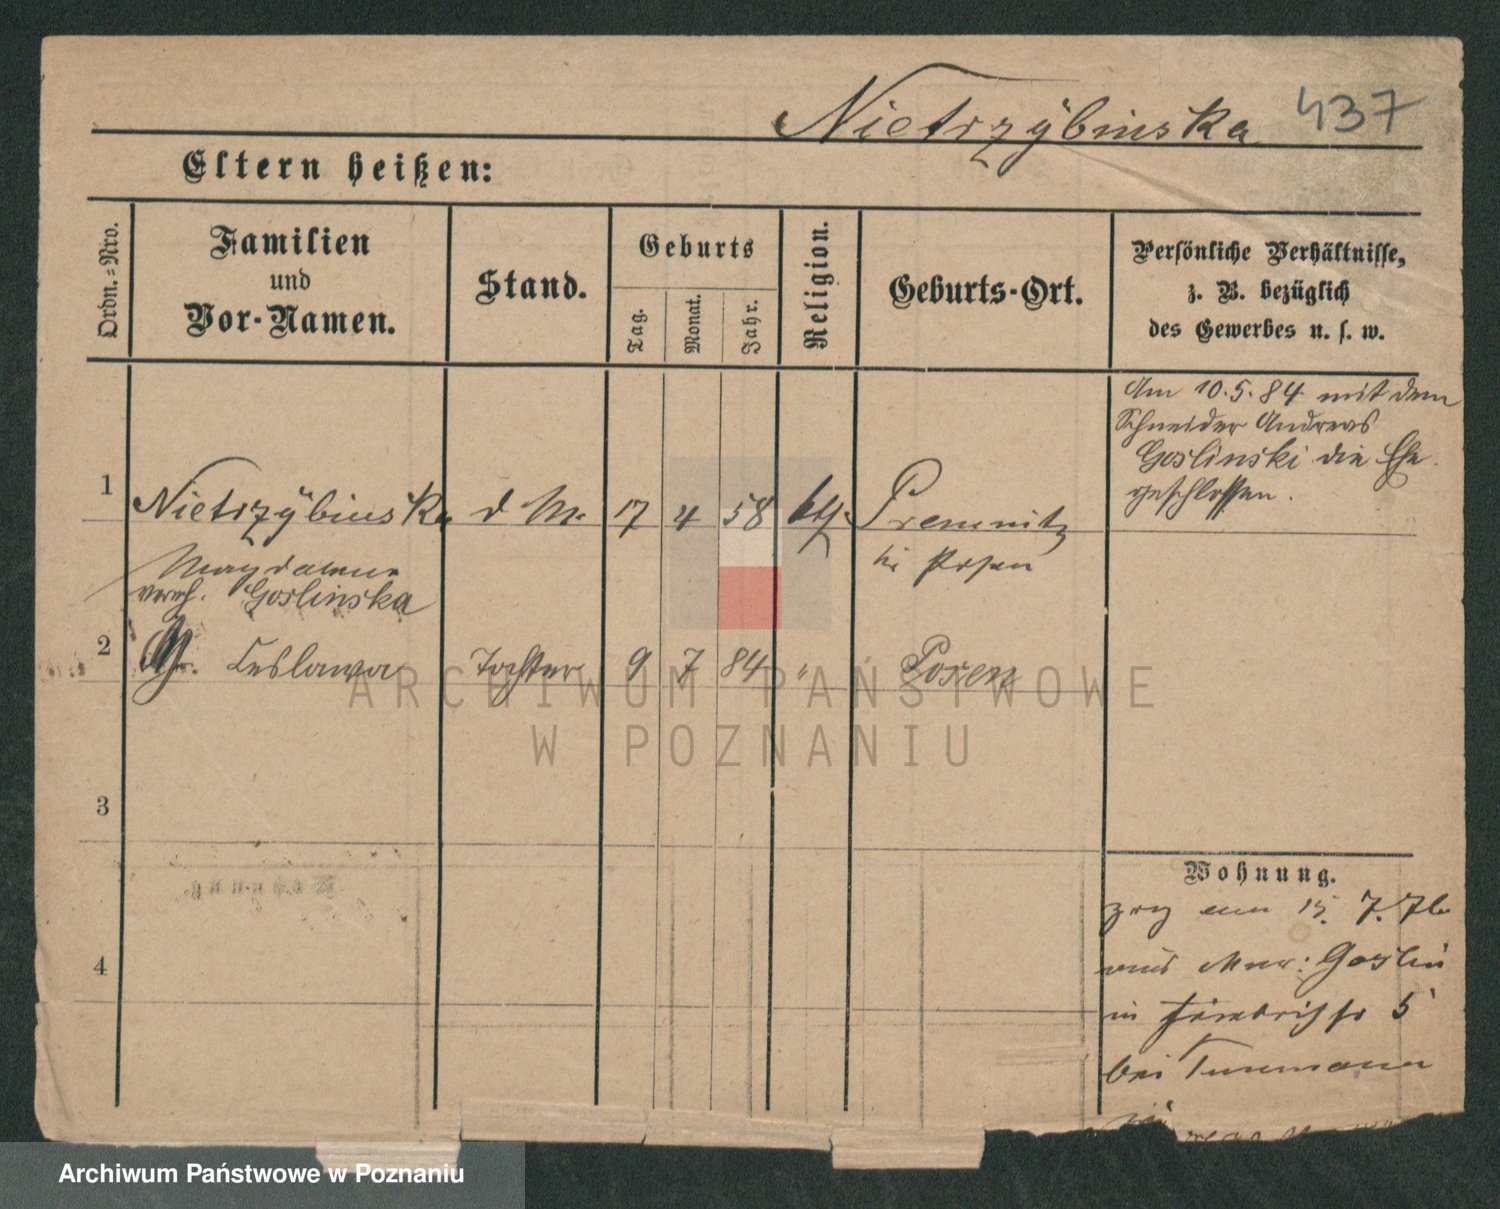 Nietrzÿbinska 437
Eltern heißen:
Ordn.=Nro.
Familien
und
Vor-Namen.
Stand.
Geburts
Tag.
Monat.
Jahr.
Religion.
Geburts-Ort.
Persönliche Verhältnisse,
z. B. bezüglich
des Gewerbes u. s. w.
Am 10.5.84 mit dem
Schneider Andreas
Goslinski die Ehe
geschlossen.
1 Nietrzÿbinska d M. 17 4 58 kth. Premnitz
Magdalena
bei Posen
vereh. Goslinska
2 Ceslawa Tochter 9 7 84 " Posen
3
4
Wohnung.
Wohnung.
zog am 15. 7. 76
aus Mur: Goslin
in Friedrichstr 5
bei Tunmann
ARCHIWUM PAŃSTWOWE
W POZNANIU
Archiwum Państwowe w Poznaniu